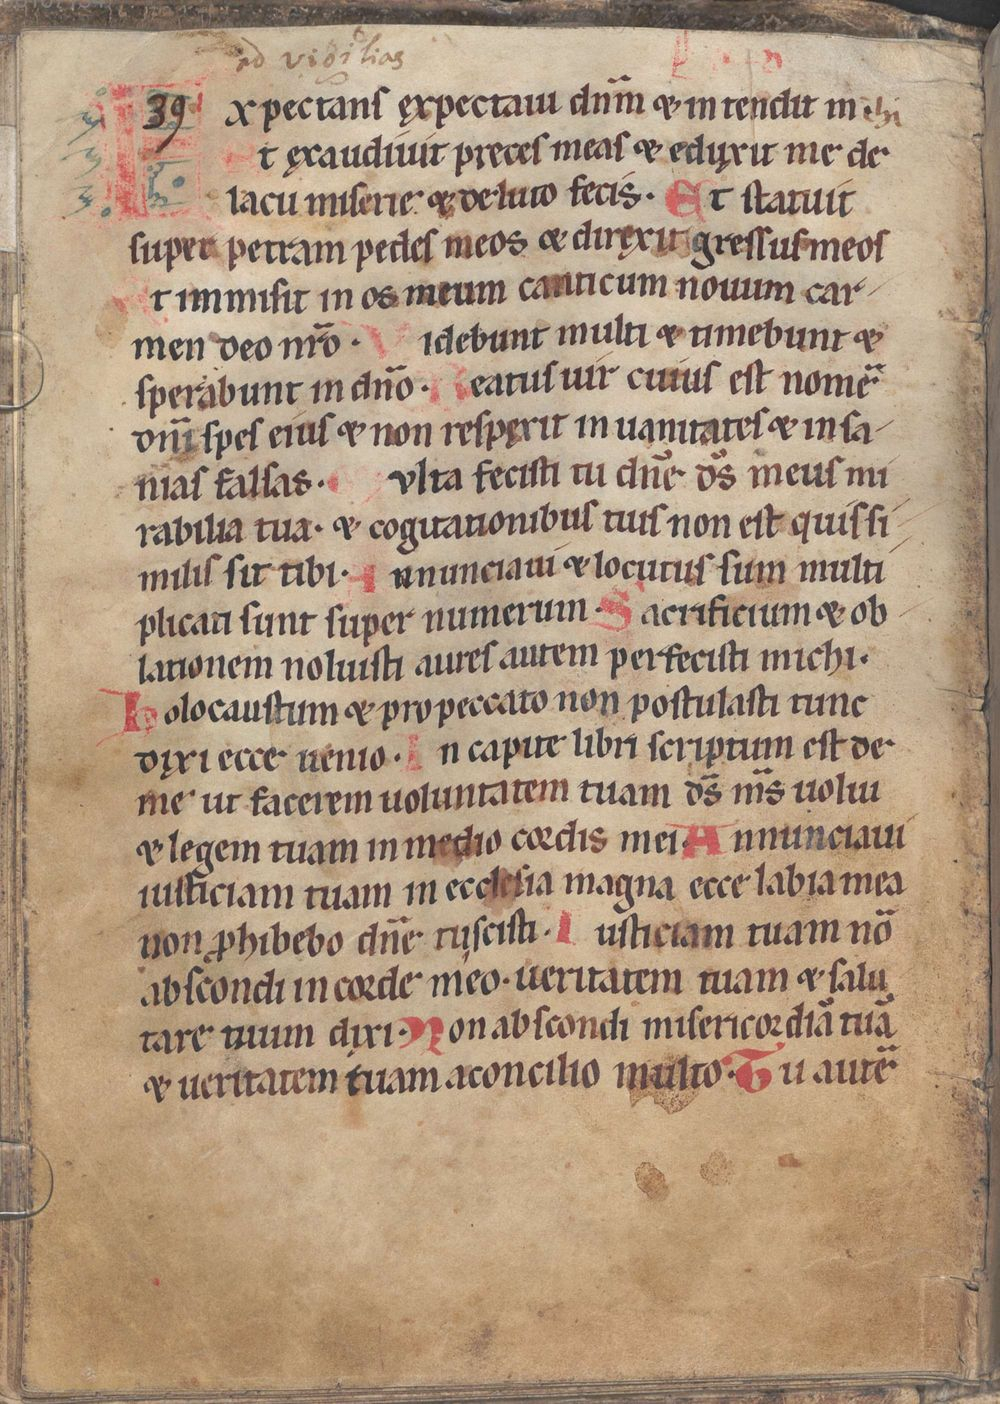 ad vigilias
39
Expectans ęxpectaui dn̄m ⁊ intendit michi
Et ęxaudiuit pręces meas ⁊ edųxit me de
lacu miserie ⁊ de luto fecis· Et statuit
super petram pedes meos ⁊ diręxit gressus meos
Et immisit in os meum canticum nouum car-
men deo nr̄o · Videbunt multi ⁊ timebunt ⁊
sperabunt in dn̄o · Beatus uir cuius est nomē
dn̄i spes eius ⁊ non respęxit in uanitates ⁊ insa-
nias falsas · Multa fecisti tu dn̄e ds̄ meus mi
rabilia tua · ⁊ cogitationibus tuis non est quis si
milis sit tibi · Annunciaui ⁊ locutus sum multi
plicati sunt super numerum · Sacrificium ⁊ ob
lationem noluisti aures autem perfecisti michi ·
holocaustum ⁊ pro peccato non postulasti tunc
dįxi ecce uenio · In capite libri scriptum est de
me ut facerem uoluntatem tuam ds̄ ms̄ uolui
⁊ legem tuam in medio cordis mei · Annunciaui
iusticiam tuam in ecclesia magna ecce labia mea
non ꝓhibebo dn̄e tu scisti · Iusticiam tuam nō
abscondi in corde meo · ueritatem tuam ⁊ salu
tare tuum dixi · Non abscondi misericordiā tuā
⁊ ueritatem tuam aconcilio multo · Tu autē